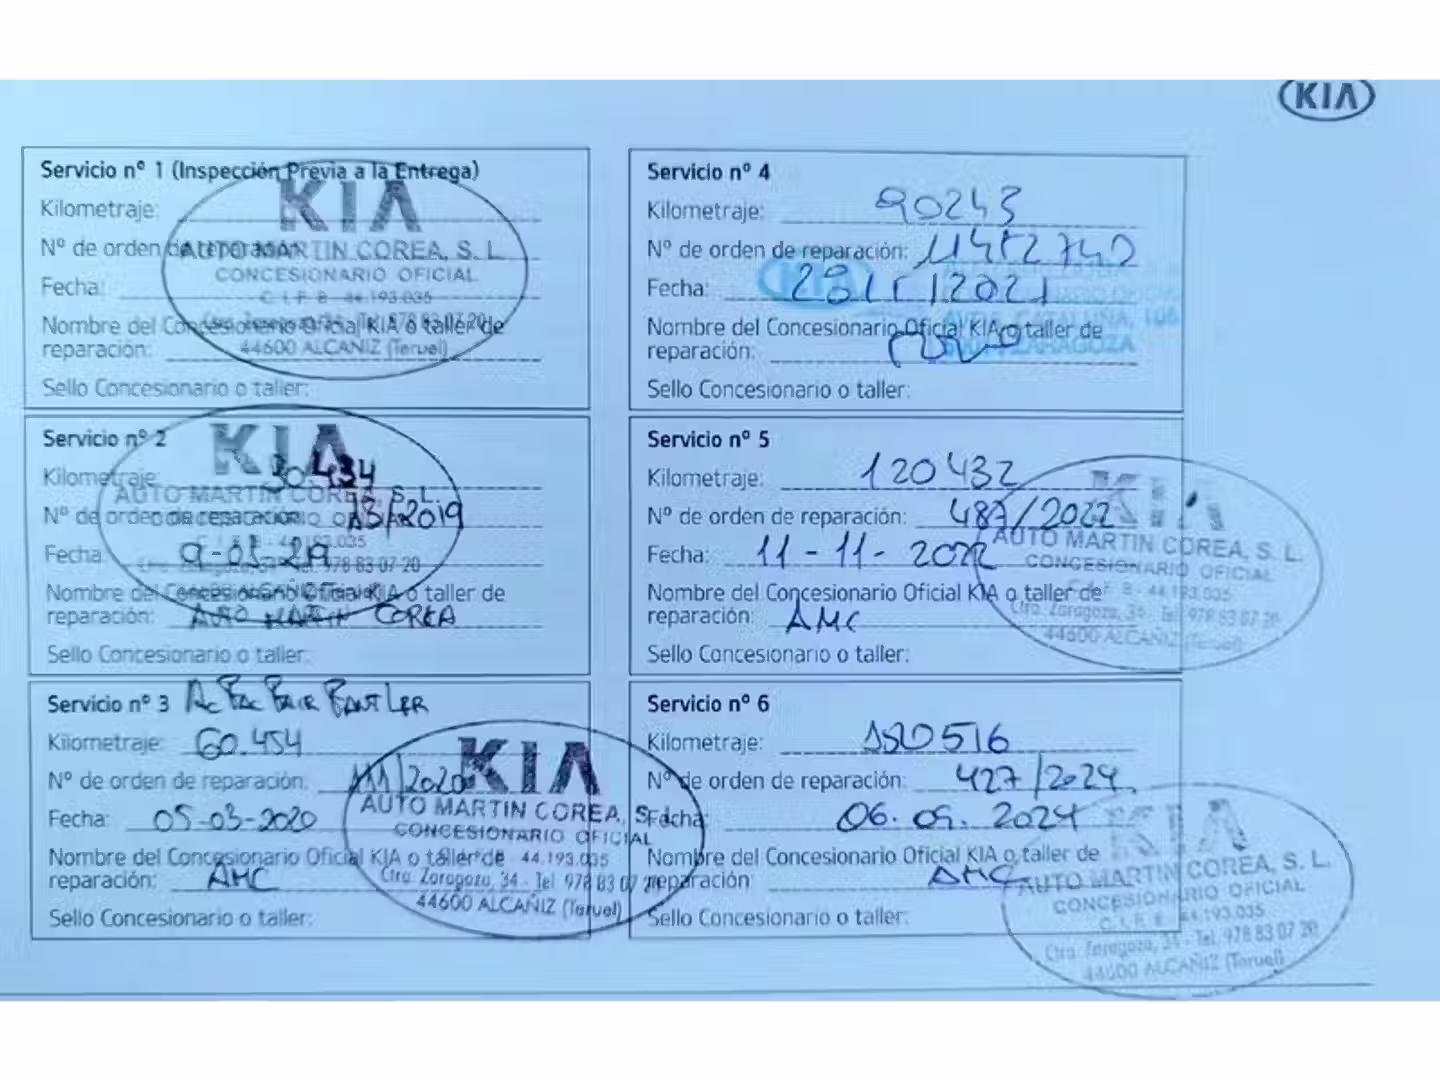 KIA
Servicio nº 1 (Inspección Previa a la Entrega)
Kilometraje:
Nº de orden de reparación:
Fecha:
Nombre del Concesionario Oficial KIA o taller de
reparación:
Sello Concesionario o taller:
KIA
AUTO MARTIN COREA, S. L.
CONCESIONARIO OFICIAL
C. I. F. B - 44.193.035
Ctra. Zaragoza, 34 - Tel. 978 83 07 20
44600 ALCAÑIZ (Teruel)
Servicio nº 2
Kilometraje: 30434
Nº de orden de reparación: /2019
Fecha:
Nombre del Concesionario Oficial KIA o taller de
reparación: AUTO MARTIN COREA
Sello Concesionario o taller:
KIA
AUTO MARTIN COREA, S. L.
CONCESIONARIO
44.193.035
Ctra. Zaragoza, Tel. 978 83 07 20
Servicio nº 3
Kilometraje: 60.454
Nº de orden de reparación: 111/2020
Fecha: 05-03-2020
Nombre del Concesionario Oficial KIA o taller de
reparación: AMC
Sello Concesionario o taller:
KIA
AUTO MARTIN COREA, S.
CONCESIONARIO OFICIAL
44.193.035
Ctra. Zaragoza, 34 - Tel 978 83 07 20
44600 ALCAÑIZ (Teruel)
Servicio nº 4
Kilometraje: 90243
Nº de orden de reparación:
Fecha:
Nombre del Concesionario Oficial KIA o taller de
reparación:
Sello Concesionario o taller:
KIA
AVDA. CATALUÑA, 106
ZARAGOZA
Servicio nº 5
Kilometraje: 120432
Nº de orden de reparación: 487/2022
Fecha: 11-11-2022
Nombre del Concesionario Oficial KIA o taller de
reparación: AMC
Sello Concesionario o taller:
KIA
AUTO MARTIN COREA, S. L.
CONCESIONARIO OFICIAL
C. I. F. B - 44.193.035
Ctra. Zaragoza, 34 - Tel. 978 83 07 20
44600 ALCAÑIZ (Teruel)
Servicio nº 6
Kilometraje: 150516
Nº de orden de reparación: 427/2024
Fecha: 06.09.2024
Nombre del Concesionario Oficial KIA o taller de
reparación: AMC
Sello Concesionario o taller:
KIA
AUTO MARTIN COREA, S. L.
CONCESIONARIO OFICIAL
C. I. F. B - 44.193.035
Ctra. Zaragoza, 34 - Tel. 978 83 07 20
44600 ALCAÑIZ (Teruel)